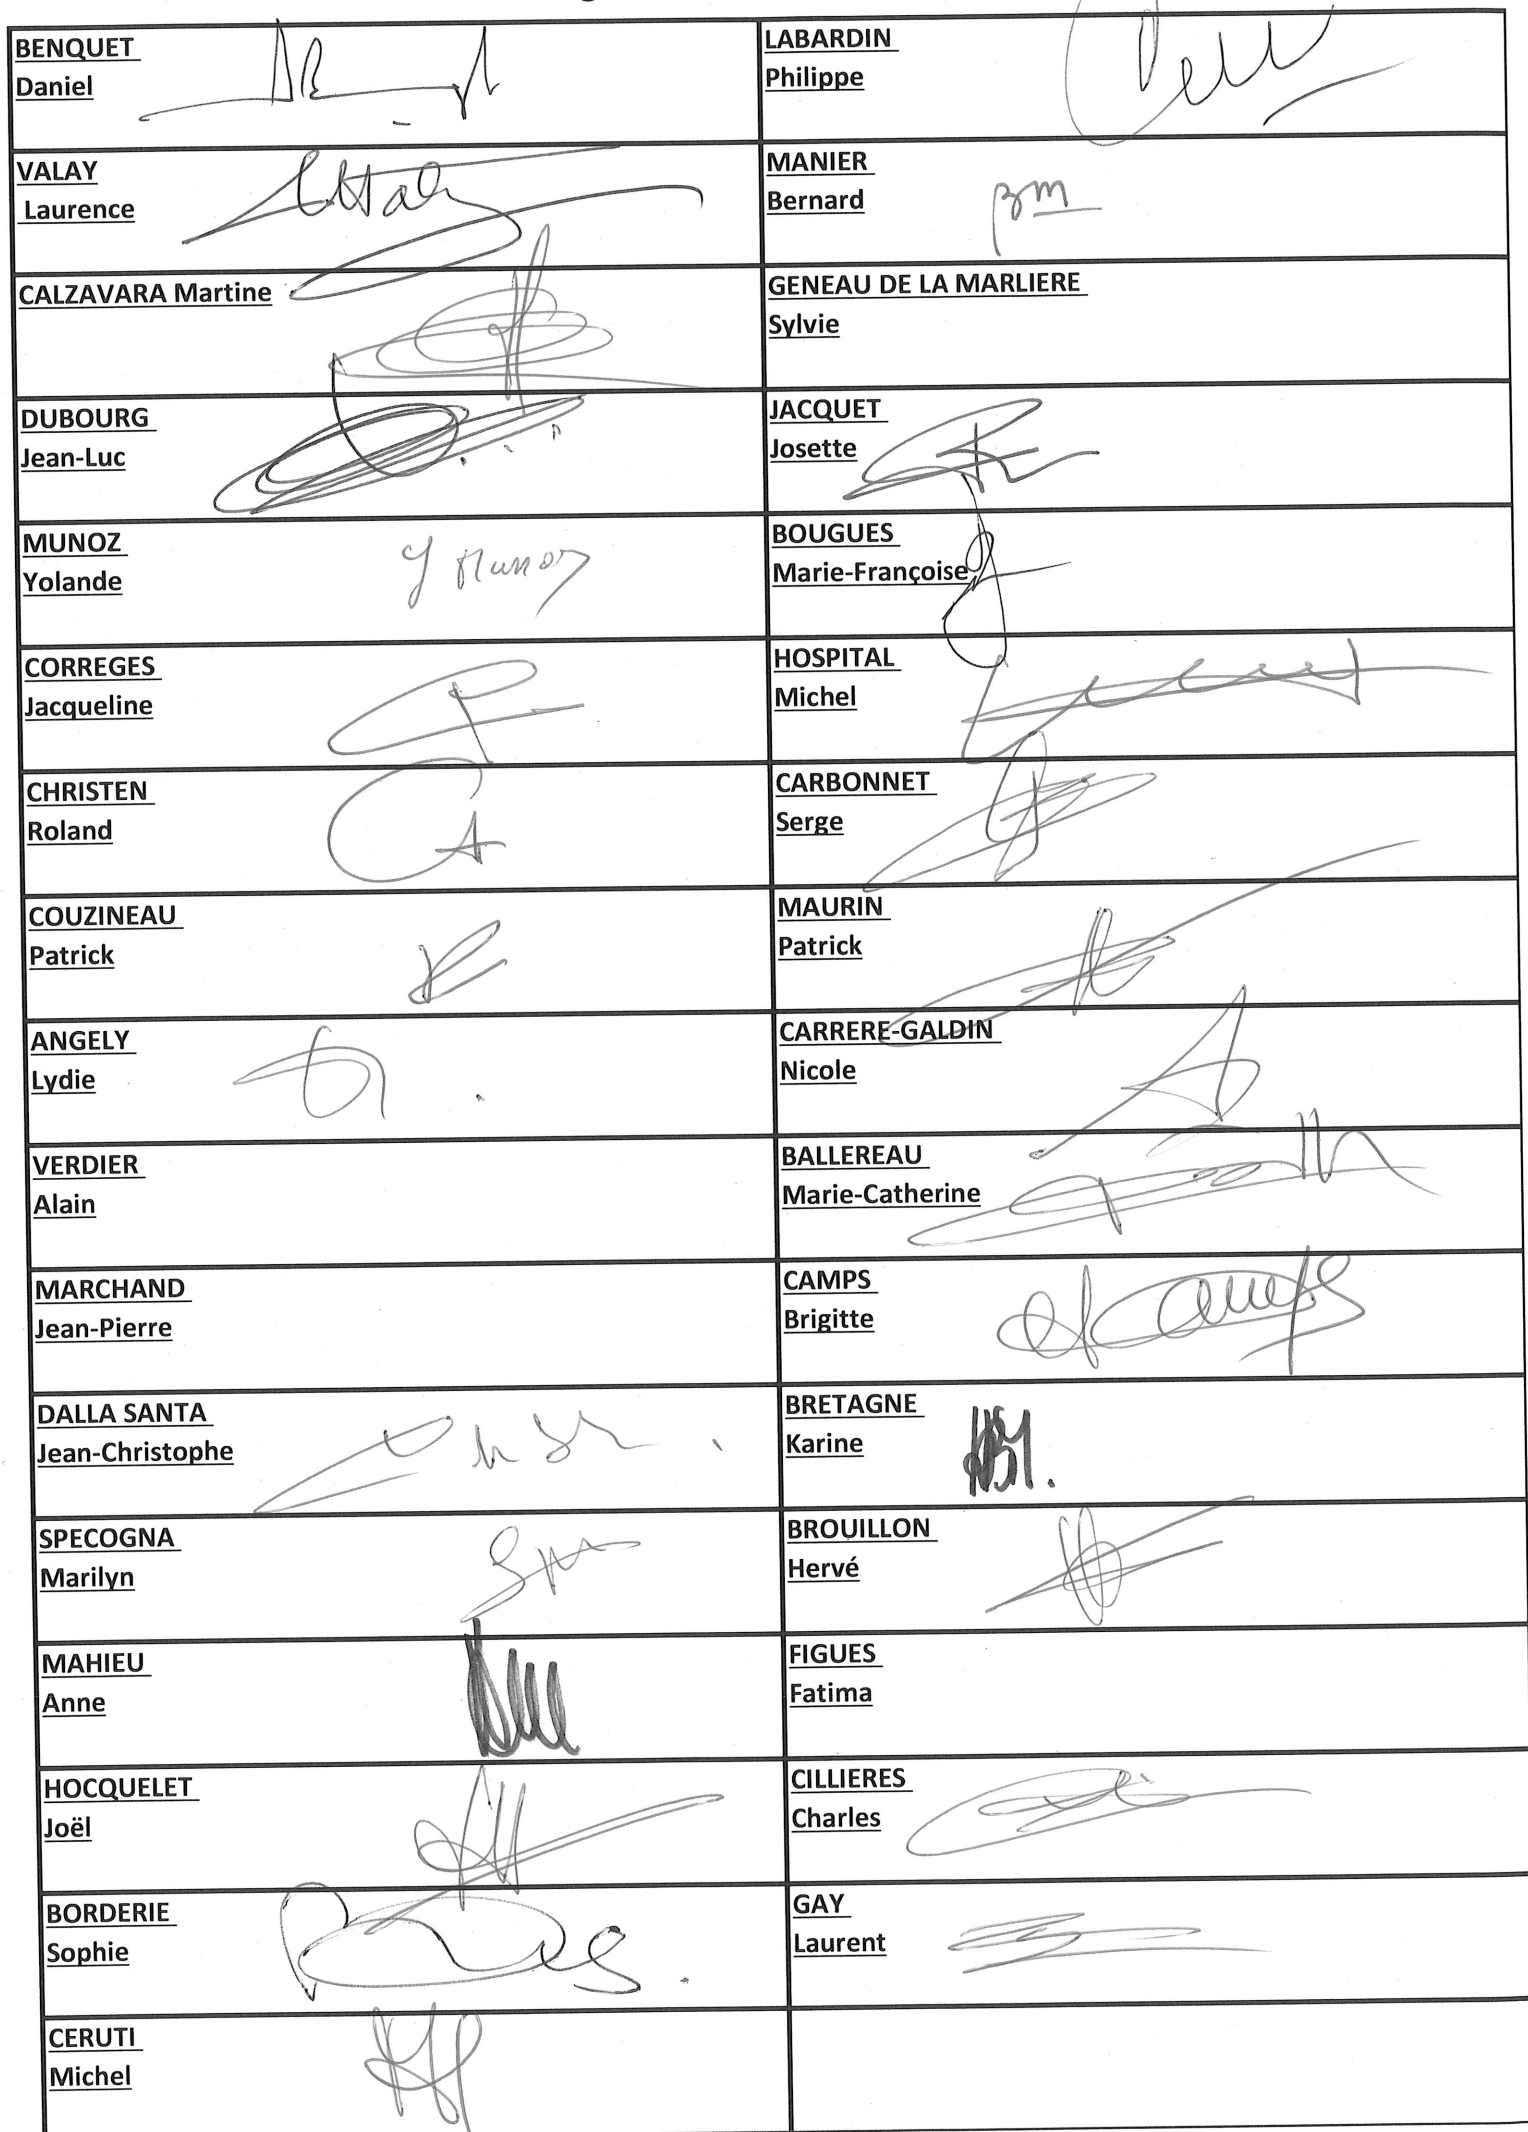 BENQUET
Daniel
LABARDIN
Philippe
VALAY
Laurence
MANIER
Bernard
BM
CALZAVARA Martine
GENEAU DE LA MARLIERE
Sylvie
DUBOURG
Jean-Luc
JACQUET
Josette
MUNOZ
Yolande
Y Munoz
BOUGUES
Marie-Françoise
CORREGES
Jacqueline
HOSPITAL
Michel
CHRISTEN
Roland
CARBONNET
Serge
COUZINEAU
Patrick
MAURIN
Patrick
ANGELY
Lydie
CARRERE-GALDIN
Nicole
VERDIER
Alain
BALLEREAU
Marie-Catherine
MARCHAND
Jean-Pierre
CAMPS
Brigitte
DALLA SANTA
Jean-Christophe
BRETAGNE
Karine
SPECOGNA
Marilyn
BROUILLON
Hervé
MAHIEU
Anne
FIGUES
Fatima
HOCQUELET
Joël
CILLIERES
Charles
BORDERIE
Sophie
GAY
Laurent
CERUTI
Michel